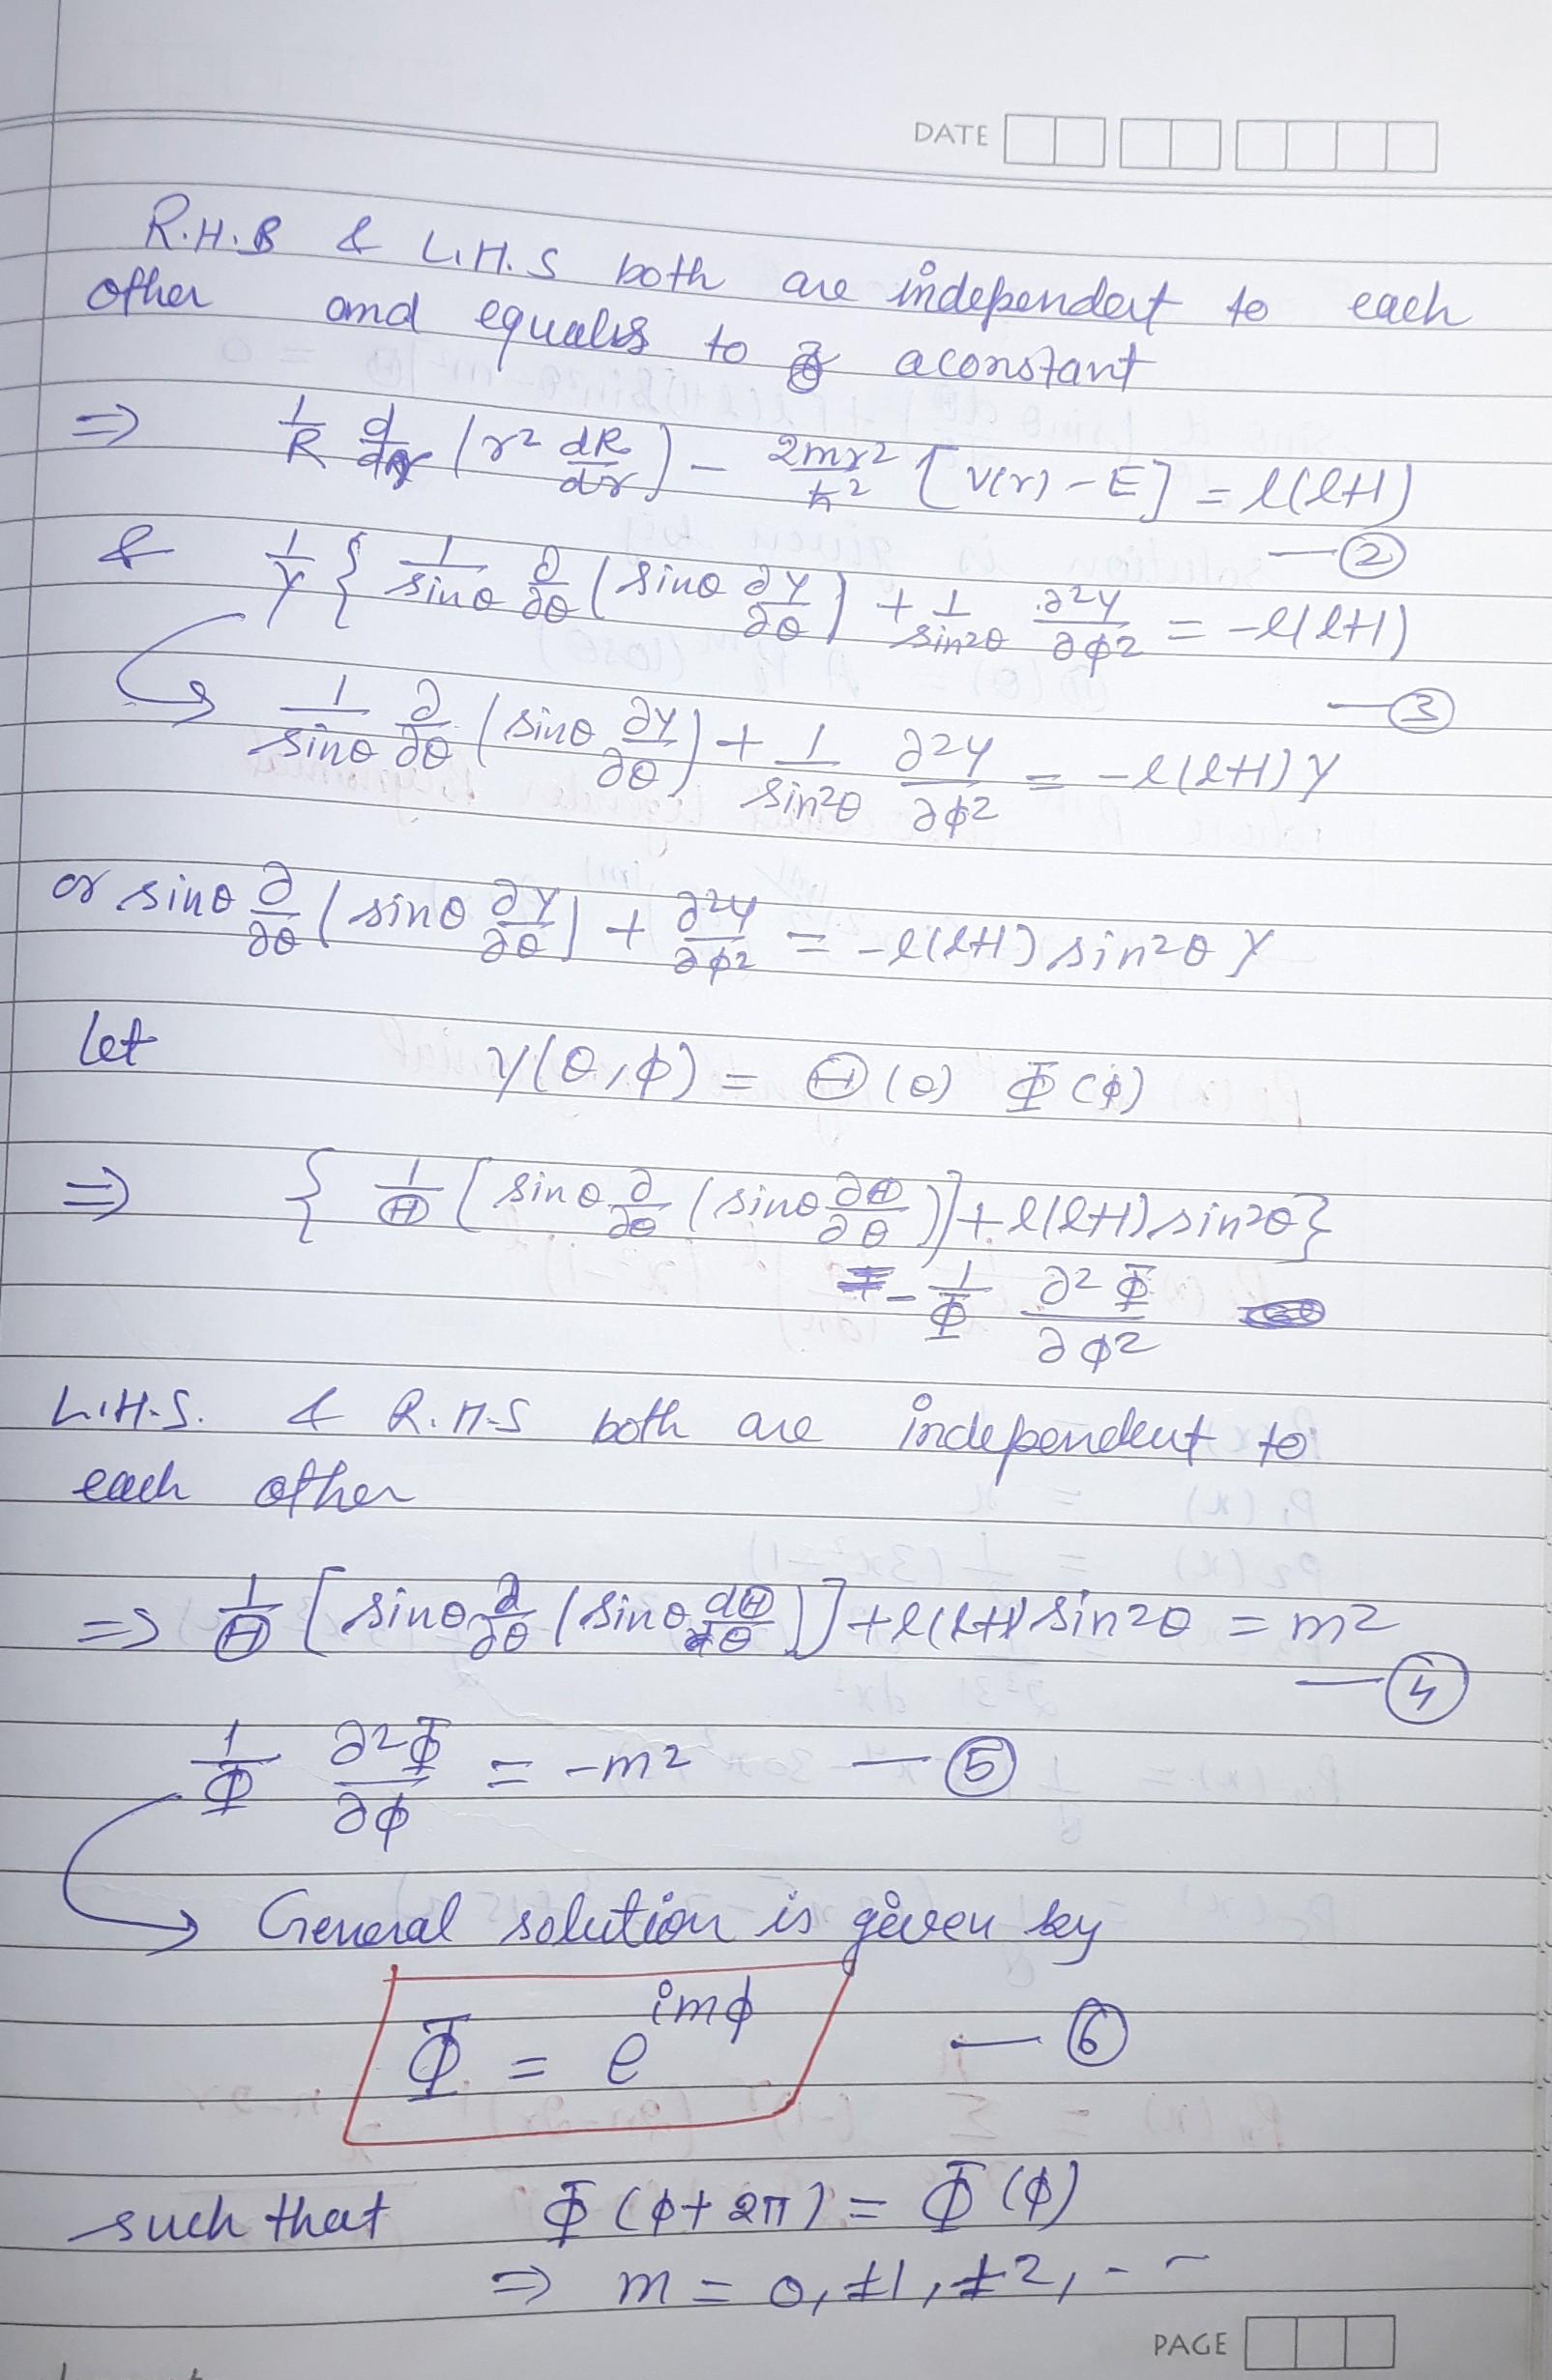 DATE
R.H.S & L.H.S both are independent to each
other and equals to a constant
⇒ 1/R d/dr (r² dR/dr) - 2mr²/ħ² [V(r) - E] = l(l+1)
— ②
& 1/Y { 1/sinθ ∂/∂θ (sinθ ∂Y/∂θ) + 1/sin²θ ∂²Y/∂φ² = -l(l+1)
— ③
1/sinθ ∂/∂θ (sinθ ∂Y/∂θ) + 1/sin²θ ∂²Y/∂φ² = -l(l+1) Y
or sinθ ∂/∂θ (sinθ ∂Y/∂θ) + ∂²Y/∂φ² = -l(l+1) sin²θ Y
Let Y(θ,φ) = Θ(θ) Φ(φ)
⇒ { 1/Θ [sinθ ∂/∂θ (sinθ ∂Θ/∂θ)] + l(l+1) sin²θ}
= - 1/Φ ∂²Φ/∂φ²
L.H.S. & R.H.S both are independent to
each other
⇒ 1/Θ [sinθ ∂/∂θ (sinθ dΘ/dθ)] + l(l+1) sin²θ = m²
— ④
1/Φ ∂²Φ/∂φ = -m² — ⑤
General solution is given by
Φ = e^{imφ} — ⑥
such that Φ(φ+2π) = Φ(φ)
⇒ m = 0, ±1, ±2, - -
PAGE